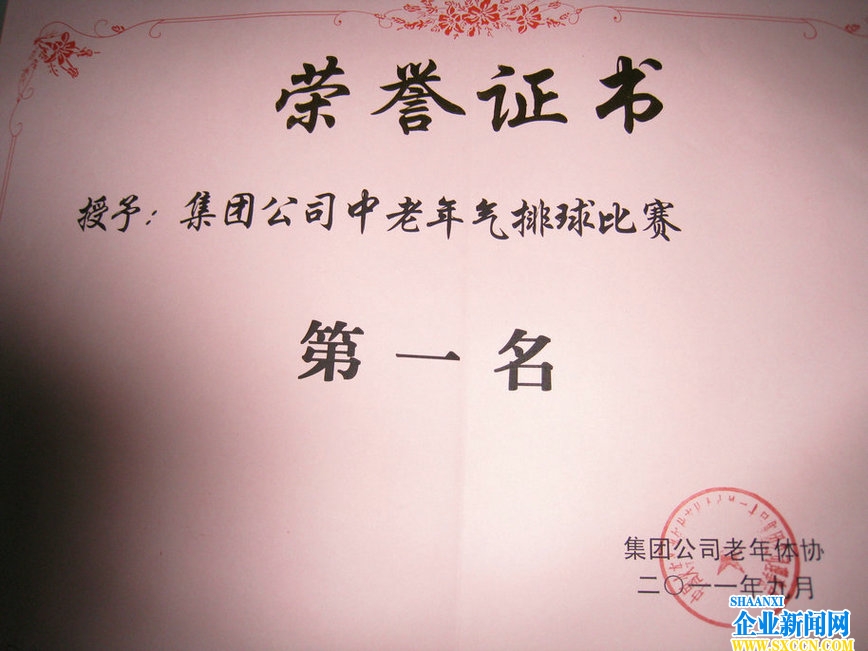 荣誉证书
授予：集团公司中老年气排球比赛
第一名
集团公司老年体协
二〇一一年九月
SHAANXI
企业新闻网
WWW.SXCCN.COM